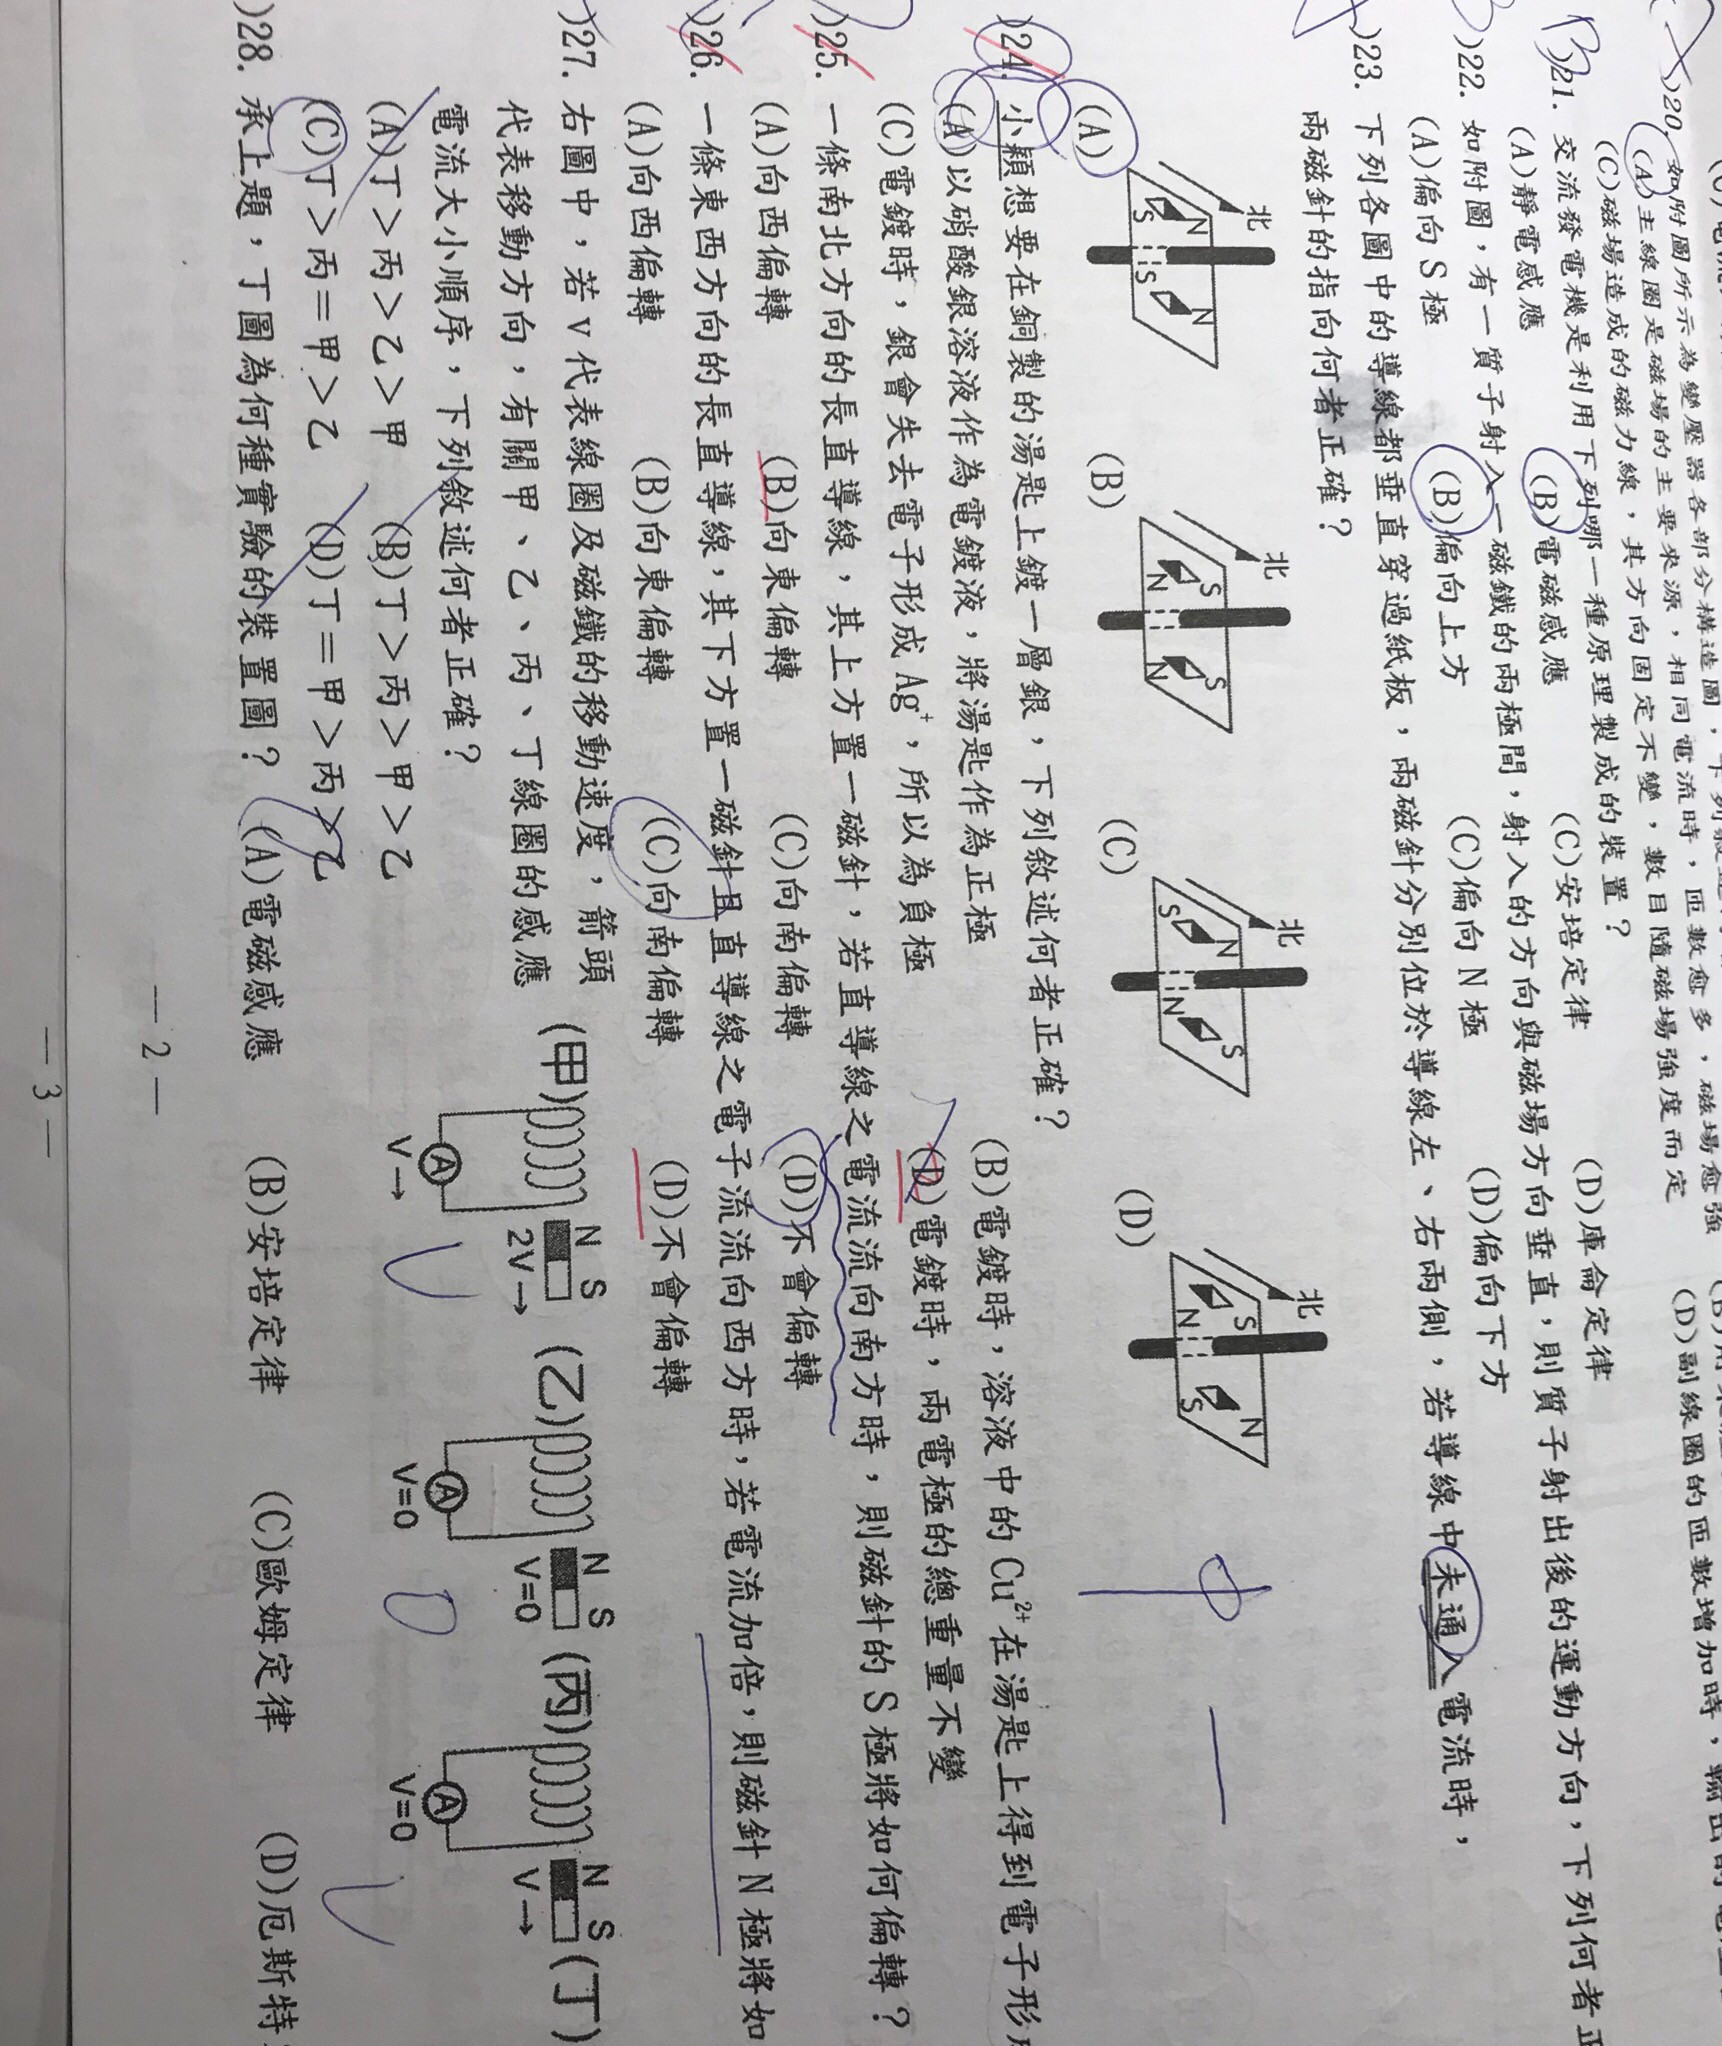 )20. 如附圖所示為變壓器各部分構造圖，下列
(A)主線圈是磁場的主要來源，相同電流時，匝數愈多，磁場愈強
(C)磁場造成的磁力線，其方向固定不變，數目隨磁場強度而定 (D)副線圈的匝數增加時，輸出的
(B)21. 交流發電機是利用下列哪一種原理製成的裝置？
(A)靜電感應 (B)電磁感應 (C)安培定律 (D)庫侖定律
)22. 如附圖，有一質子射入一磁鐵的兩極間，射入的方向與磁場方向垂直，則質子射出後的運動方向，下列何者正
(A)偏向S極 (B)偏向上方 (C)偏向N極 (D)偏向下方
)23. 下列各圖中的導線都垂直穿過紙板，兩磁針分別位於導線左、右兩側，若導線中未通入電流時，
兩磁針的指向何者正確？
(A) 北 N S N S (B) 北 S N S N (C) 北 N S S N (D) 北 S N N S
)24. 小穎想要在銅製的湯匙上鍍一層銀，下列敘述何者正確？
(A)以硝酸銀溶液作為電鍍液，將湯匙作為正極 (B)電鍍時，溶液中的Cu²⁺在湯匙上得到電子形
(C)電鍍時，銀會失去電子形成Ag⁺，所以為負極 (D)電鍍時，兩電極的總重量不變
)25. 一條南北方向的長直導線，其上方置一磁針，若直導線之電流流向南方時，則磁針的S極將如何偏轉？
(A)向西偏轉 (B)向東偏轉 (C)向南偏轉 (D)不會偏轉
)26. 一條東西方向的長直導線，其下方置一磁針且直導線之電子流流向西方時，若電流加倍，則磁針N極將如
(A)向西偏轉 (B)向東偏轉 (C)向南偏轉 (D)不會偏轉
)27. 右圖中，若v代表線圈及磁鐵的移動速度，箭頭
代表移動方向，有關甲、乙、丙、丁線圈的感應
電流大小順序，下列敘述何者正確？
(A)丁＞丙＞乙＞甲 (B)丁＞丙＞甲＞乙
(C)丁＞丙＝甲＞乙 (D)丁＝甲＞丙＞乙
(甲) N S A V→ 2V→
(乙) N S A V=0 V=0
(丙) N S A V=0 V→
(丁)
)28. 承上題，丁圖為何種實驗的裝置圖？ (A)電磁感應 (B)安培定律 (C)歐姆定律 (D)厄斯特
—2—
—3—